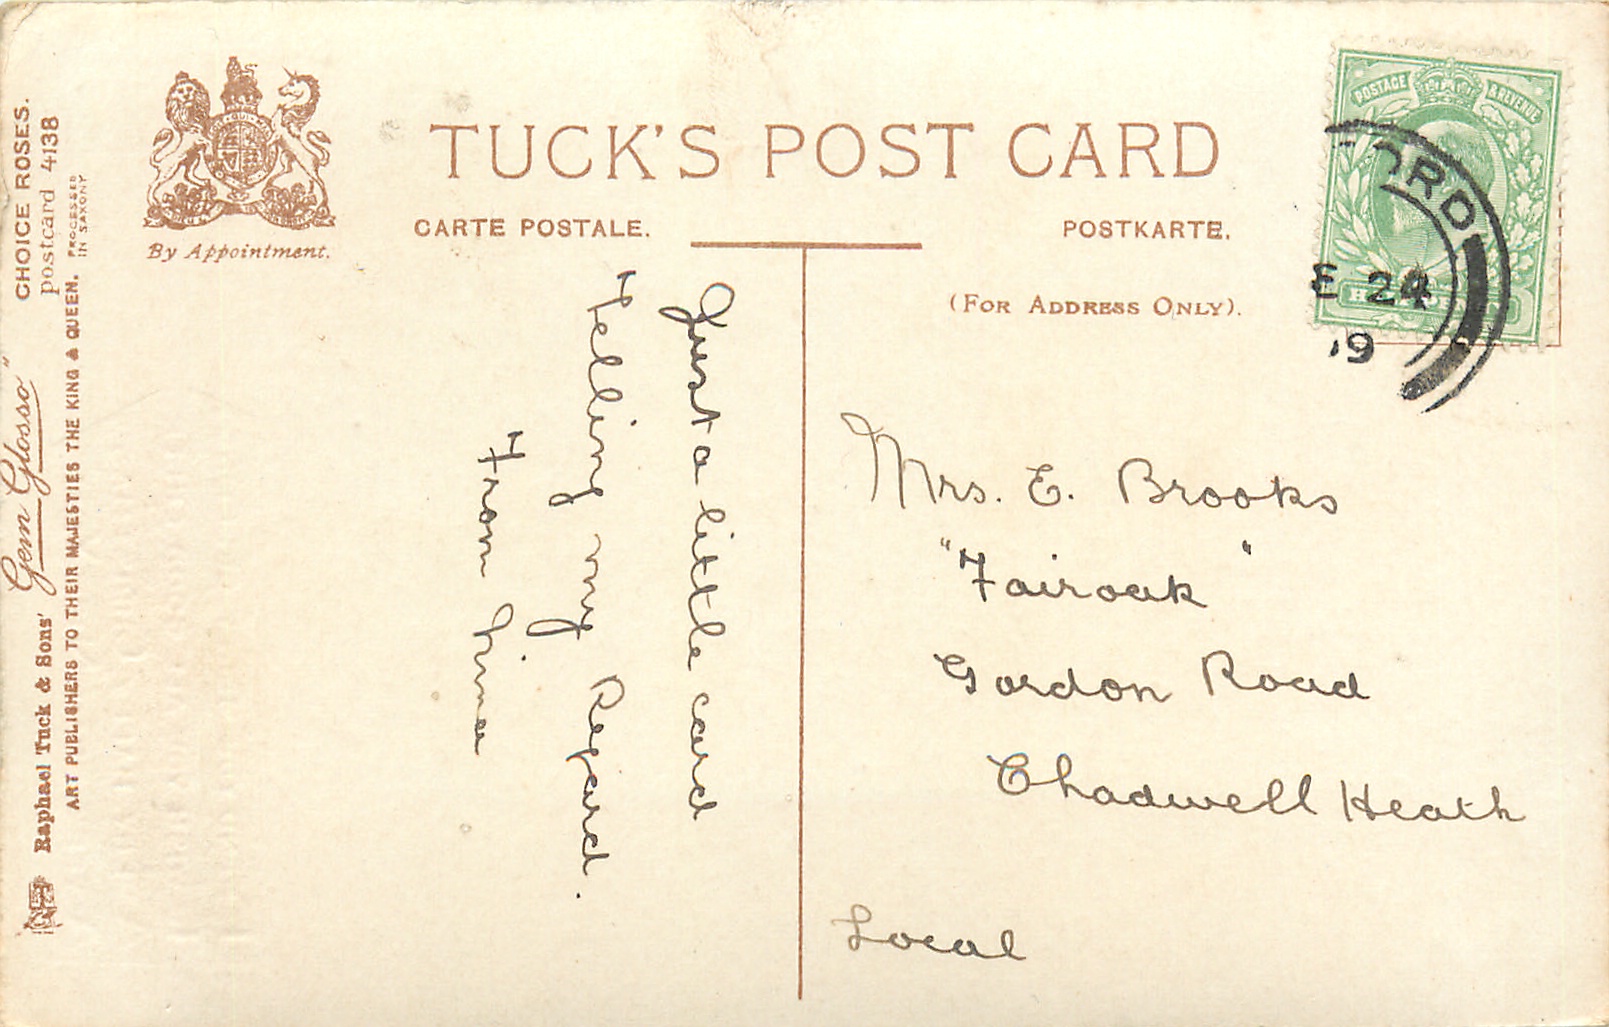 TUCK'S POST CARD
CARTE POSTALE.
POSTKARTE.
(FOR ADDRESS ONLY).
By Appointment.
CHOICE ROSES.
postcard 4138
PROCESSED
IN SAXONY
Raphael Tuck & Sons' "Gem Glosso"
ART PUBLISHERS TO THEIR MAJESTIES THE KING & QUEEN.
POSTAGE & REVENUE
ORD
E 24
9
Just a little card
Telling my Regard.
From
Mrs. E. Brooks
"Fairoak"
Gordon Road
Chadwell Heath
Local